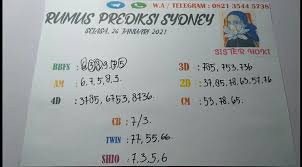 W.A / TELEGRAM : 0821 3544 5738
RUMUS PREDIKSI SYDNEY
SELASA, 26 JANUARI 2021
SISTER HOKI
BBFS :
AM : 6,7,5,8,3.
4D : 3785, 6753, 8736.
3D : 785, 753, 736
2D : 37,85,78,63,57,76
CM : 53,78,65.
CB : 7/3.
TWIN : 77,55,66.
SHIO : 7,3,5,6